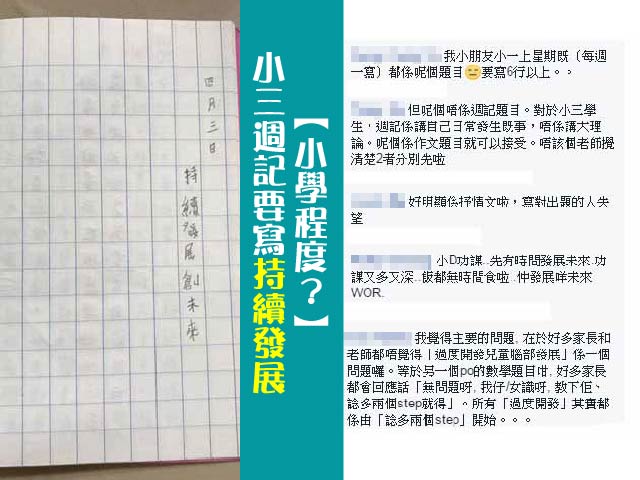 四月三日
持續發展創未來
【小學程度？】
小三週記要寫持續發展
我小朋友小一上星期既〔每週
一寫〕都係呢個題目😑要寫6行以上。。
但呢個唔係週記題目。對於小三學
生，週記係講自己日常發生既事，唔係講大理
論。呢個係作文題目就可以接受。唔該個老師攪
清楚2者分別先啦
好明顯係抒情文啦，寫對出題的人失
望
小D功課..先有時間發展未來.功
課又多又深..飯都無時間食啦..仲發展咩未來
WOR.
我覺得主要的問題, 在於好多家長和
老師都唔覺得「過度開發兒童腦部發展」係一個
問題囉。等於另一個po的數學題目咁, 好多家長
都會回應話「無問題呀, 我仔/女識呀, 教下佢、
諗多兩個step就得」。所有「過度開發」其實都
係由「諗多兩個step」開始。。。